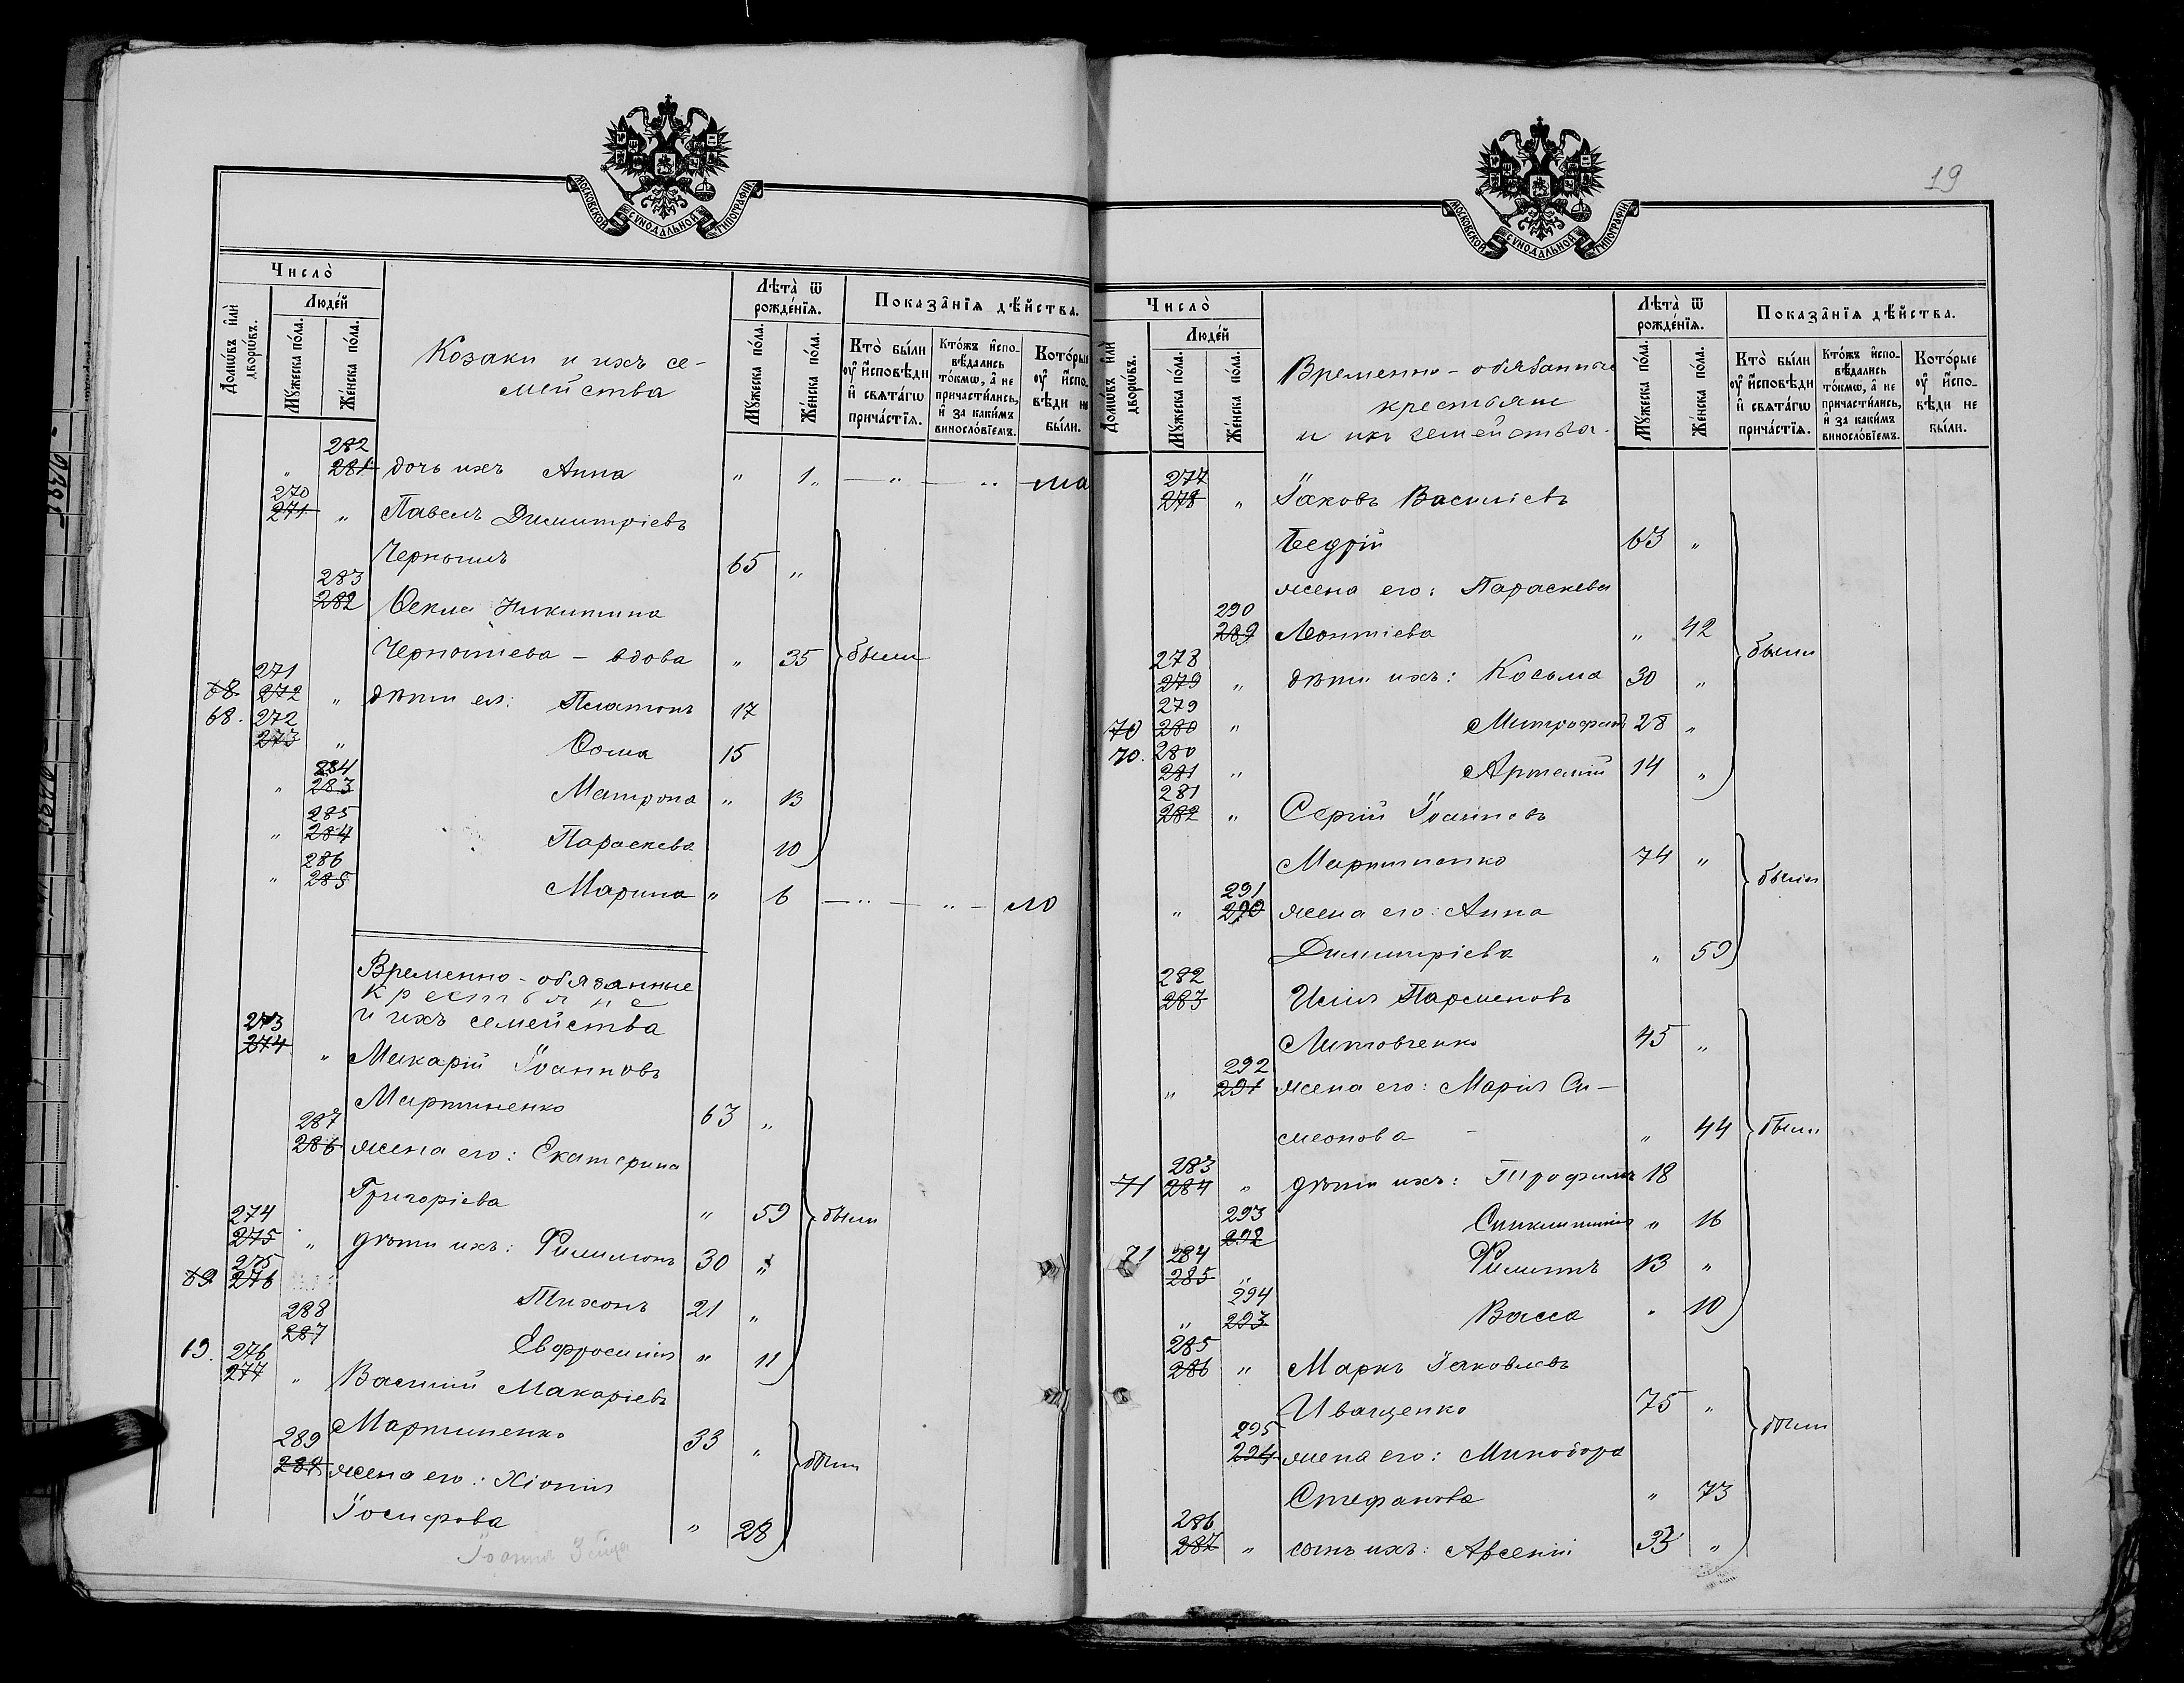 МОСКОВСКОЙ СѴНОДАЛЬНОЙ ТИПОГРАФІИ
Число̀
Домѡ́въ и҆лѝ дворѡ́въ.
Люде́й
Мꙋ́жеска по́ла.
Же́нска по́ла.
Козаки и ихъ се-
мейства
Лѣта̀ ѿ рожде́нїѧ.
Мꙋ́жеска по́ла.
Же́нска по́ла.
Показа̑нїѧ дѣ́йства.
Кто̀ бы́ли ᲂу҆ и҆́сповѣди и҆ свѧта́гѡ прича́стїѧ.
Кто́жъ и҆спо-вѣ́дались то́кмѡ, а҆ не причасти́лись, и҆ за каки́мъ винослѡ́вїемъ.
Кото́рые ᲂу҆ и҆́спо-вѣди не бы́ли.
282
" 281 дочь ихъ Анна " 1 " — " — " — ма
270
271 " Павелъ Димитріевъ
Чернышъ 65 "
283
282 Ѳекла Никитина
Чернышева - вдова " 35 были
271
68 272 " дѣти ея: Платонъ 17
68. 272
273 " Ѳома 15
284
" 283 Матрона " 13
285
" 284 Параскева 10
286
" 285 Марина " 6 — " — " — ло
Временно-обязанные
крестьяне
и ихъ семейства
273
274 " Макарій Іоанновъ
Мартиненко 63 "
287
286 жена его: Екатерина
Григоріева " 59 были
274
275 " дѣти ихъ: Филимонъ 30 "
275
69 276 Тихонъ 21 "
288
287 Евфросинія " 11
69. 276
277 " Василий Макаріевъ
Мартиненко 33 "
289
288 жена его: Хіонія были
Іосифова " 28
19
МОСКОВСКОЙ СѴНОДАЛЬНОЙ ТИПОГРАФІИ
Число̀
Домѡ́въ и҆лѝ дворѡ́въ.
Люде́й
Мꙋ́жеска по́ла.
Же́нска по́ла.
Временно-обязанные
крестьяне
и ихъ семейства.
Лѣта̀ ѿ рожде́нїѧ.
Мꙋ́жеска по́ла.
Же́нска по́ла.
Показа̑нїѧ дѣ́йства.
Кто̀ бы́ли ᲂу҆ и҆́сповѣди и҆ свѧта́гѡ прича́стїѧ.
Кто́жъ и҆спо-вѣ́дались то́кмѡ, а҆ не причасти́лись, и҆ за каки́мъ винослѡ́вїемъ.
Кото́рые ᲂу҆ и҆́спо-вѣди не бы́ли.
277
278 " Іаковъ Василіевъ
Бедрій 63 "
жена его: Параскева
290
289 Леонтіева " 42
278 были
279 " дѣти ихъ: Косьма 30 "
279
70 280 " Митрофанъ 28 "
70. 280
281 " Артемій 14 "
281
282 " Сергій Іоанновъ
Мартиненко 74 "
291 были
" 290 жена его: Анна
Димитріева " 59
282
283 Илія Парменовъ
Литовченко 45 "
292
" 291 жена его: Марія Си-
меонова " 44 были
283
71 284 " дѣти ихъ: Трофимъ 18
293
292 Синклитикія " 16
71 284
285 " Филиппъ 13 "
294
" 293 Васса " 10
285
286 " Маркъ Іаковлевъ
Иващенко 75 "
295 были
294 жена его: Минодора
Стефанова " 73
286
287 " сынъ ихъ: Арсеній 33 "